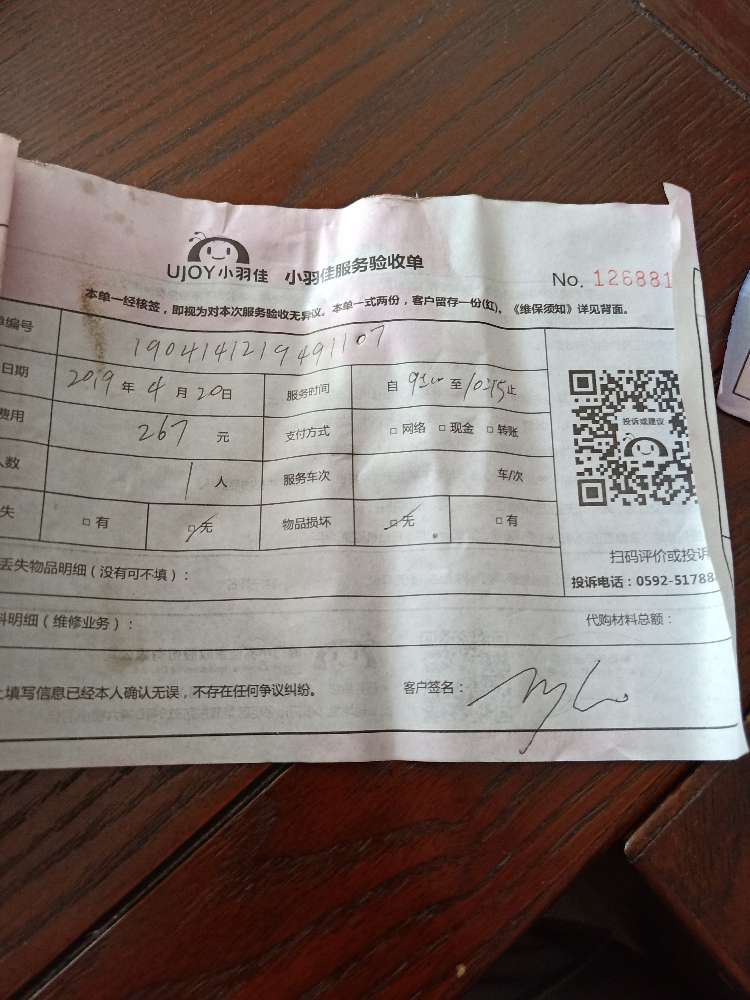 UJOY小羽佳 小羽佳服务验收单
No. 126881
本单一经核签，即视为对本次服务验收无异议。本单一式两份，客户留存一份(红)。《维保须知》详见背面。
单编号 1904141219491107
日期 2019 年 4 月 20 日 服务时间 自 至 10:15 止
费用 267 元 支付方式 □ 网络 □ 现金 □ 转账
人数 1 人 服务车次 车/次
失 □ 有 □ 无 物品损坏 □ 无 □ 有
投诉或建议
扫码评价或投诉
投诉电话：0592-51788
丢失物品明细（没有可不填）：
料明细（维修业务）： 代购材料总额：
上填写信息已经本人确认无误，不存在任何争议纠纷。 客户签名：